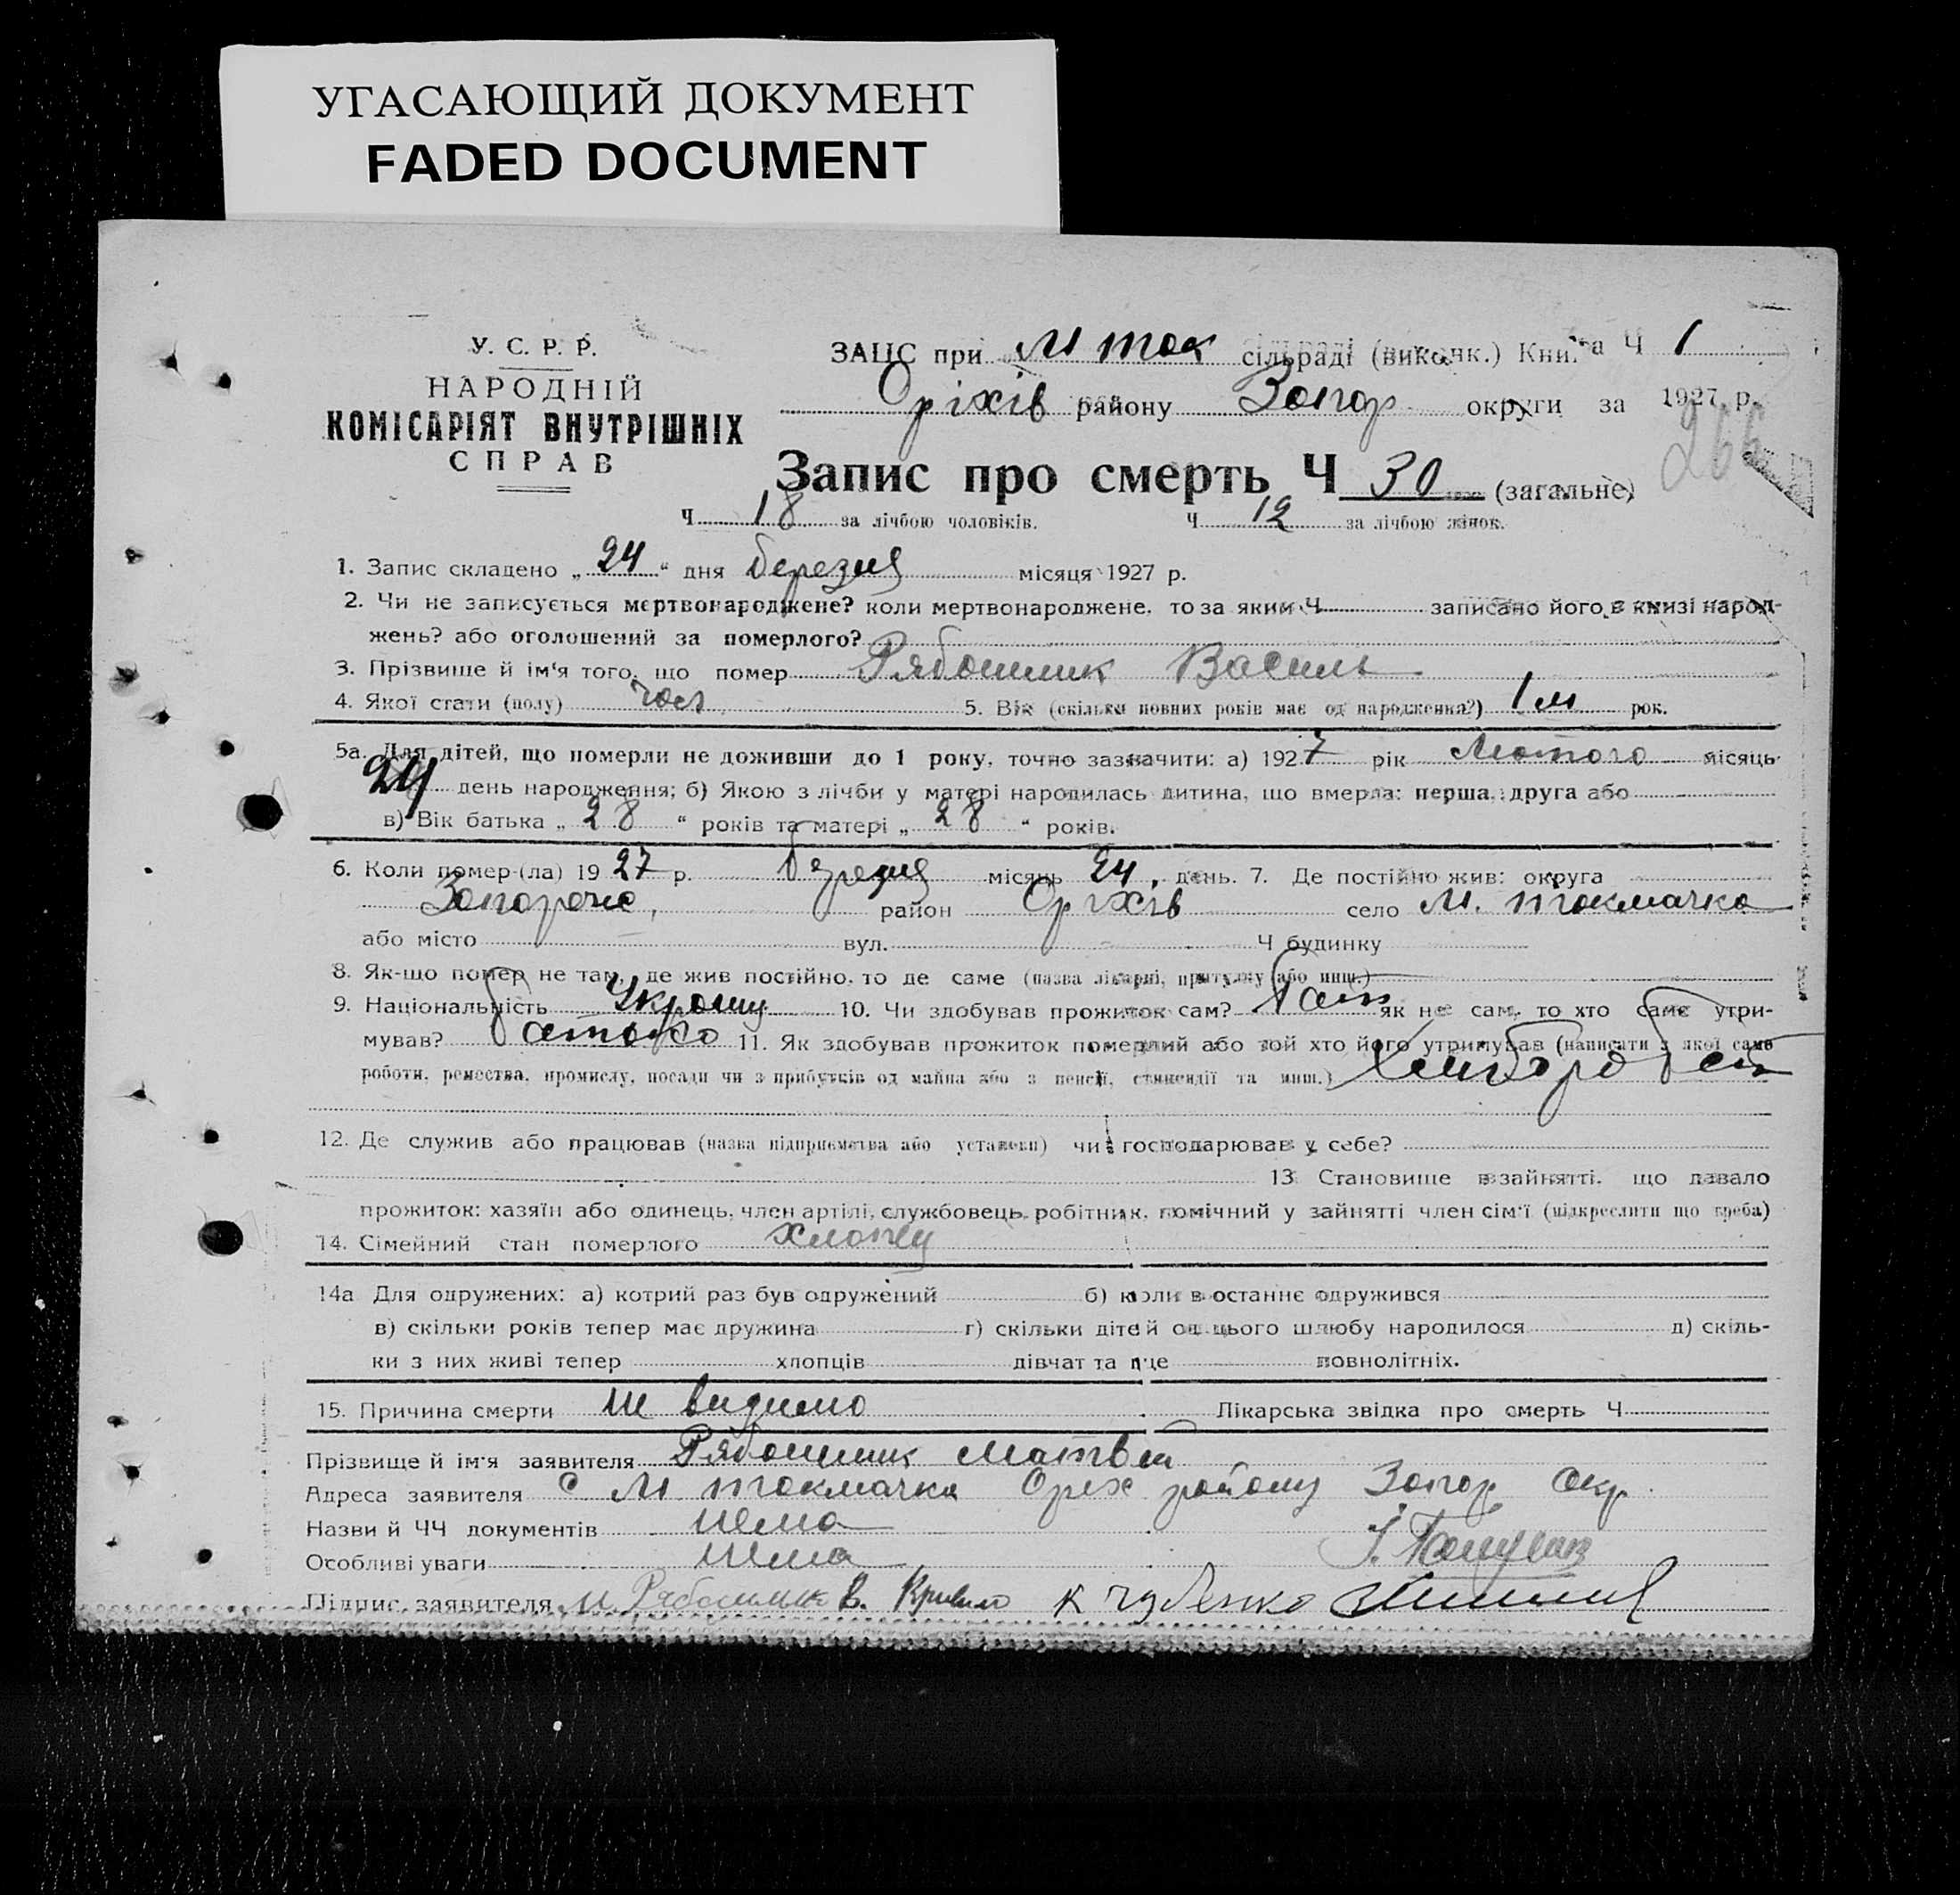 УГАСАЮЩИЙ ДОКУМЕНТ
FADED DOCUMENT
У. С. Р. Р.
НАРОДНІЙ
КОМІСАРІЯТ ВНУТРІШНІХ
СПРАВ
ЗАЦС при М ток сільраді (викнк.) Книга Ч 1
Оріхів району Запор округи за 1927 р.
266
Запис про смерть Ч 30 (загальне)
Ч 18 за лічбою чоловіків. Ч 12 за лічбою жінок.
1. Запис складено „ 24 “ дня березня місяця 1927 р.
2. Чи не записується мертвонароджене? коли мертвонароджене, то за яким Ч записано його в книзі народ-
жень? або оголошений за померлого?
3. Прізвище й ім'я того, що помер Рябошлик Василь
4. Якої стати (полу) чол 5. Вік (скільки повних років має од народження?) 1 м рок.
5а. Для дітей, що померли не доживши до 1 року, точно зазначити: а) 1927 рік Лютого місяць
24 день народження; б) Якою з лічби у матері народилась дитина, що вмерла: перша, друга або
в) Вік батька „ 28 “ років та матері „ 28 “ років.
6. Коли помер (ла) 1927 р. місяць 24 день. 7. Де постійно жив: округа
район Оріхів село М. токмачка
або місто вул. Ч будинку
8. Як-що помер не там, де жив постійно, то де саме (назва лікарні, притулку або инш.)
9. Національність 10. Чи здобував прожиток сам? як не сам, то хто саме утри-
мував? батько 11. Як здобував прожиток померлий або той хто його утримував (написати з якої саме
роботи, ремества, промислу, посади чи з прибутків од майна або з пенсії, стипендії та инш.)
12. Де служив або працював (назва підприємства або установи) чи господарював у себе?
13 Становище в зайнятті, що давало
прожиток: хазяїн або одинець, член артілі, службовець, робітник, помічний у зайнятті член сім'ї (підкреслити що треба)
14. Сімейний стан померлого
14а Для одружених: а) котрий раз був одружений б) коли в останнє одружився
в) скільки років тепер має дружина г) скільки дітей од цього шлюбу народилося д) скіль-
ки з них живі тепер хлопців дівчат та ще повнолітніх.
15. Причина смерти Лікарська звідка про смерть Ч
Прізвище й ім'я заявителя Рябошлик Матвей
Адреса заявителя с М токмачка Орех району Запор окр.
Назви й ЧЧ документів нема
Особливі уваги нема
Підпис заявителя М Рябошлик К Чубенко